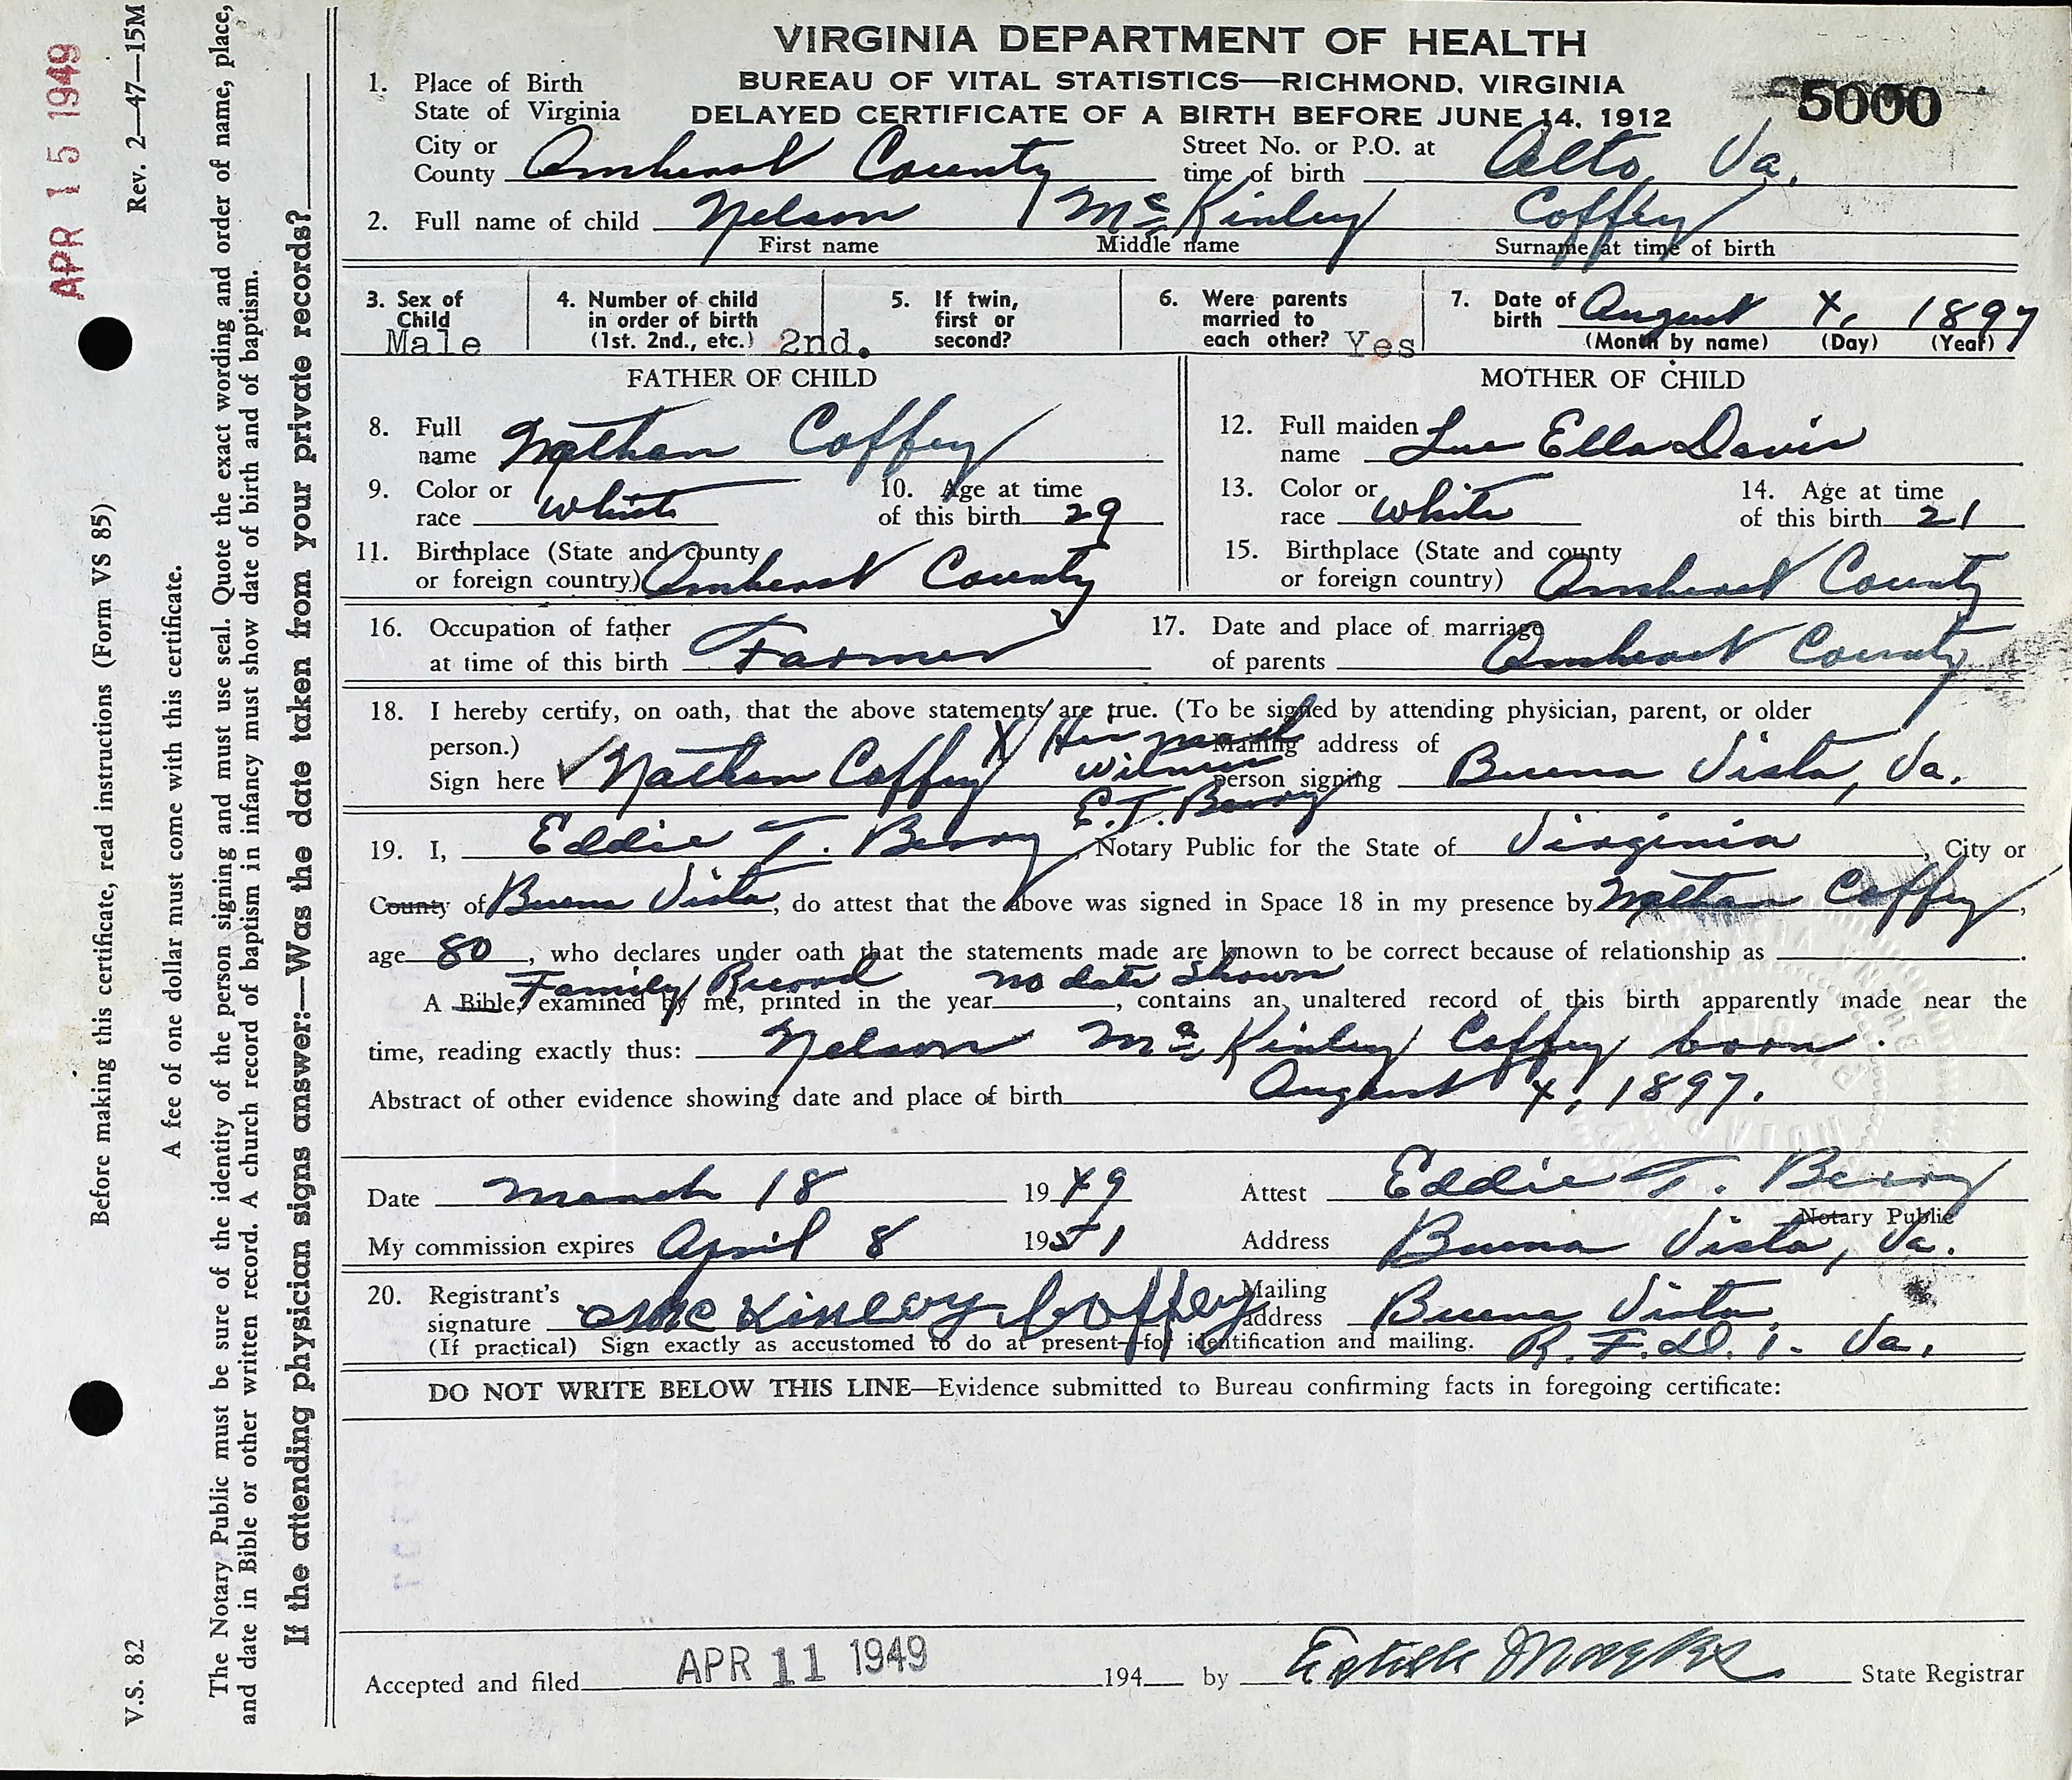 VIRGINIA DEPARTMENT OF HEALTH
BUREAU OF VITAL STATISTICS—RICHMOND, VIRGINIA
DELAYED CERTIFICATE OF A BIRTH BEFORE JUNE 14, 1912
5000
1. Place of Birth
State of Virginia
City or County Amherst County Street No. or P.O. at time of birth Alto, Va.
2. Full name of child Nelson McKinley Coffey
First name Middle name Surname at time of birth
3. Sex of Child Male 4. Number of child in order of birth (1st. 2nd., etc.) 2nd. 5. If twin, first or second? 6. Were parents married to each other? Yes 7. Date of birth August 4, 1897
(Month by name) (Day) (Year)
FATHER OF CHILD MOTHER OF CHILD
8. Full name Nathan Coffey 12. Full maiden name Lue Ella Davis
9. Color or race White 10. Age at time of this birth 29 13. Color or race White 14. Age at time of this birth 21
11. Birthplace (State and county or foreign country) Amherst County 15. Birthplace (State and county or foreign country) Amherst County
16. Occupation of father at time of this birth Farmer 17. Date and place of marriage of parents Amherst County
18. I hereby certify, on oath, that the above statements are true. (To be signed by attending physician, parent, or older
person.)
Sign here Nathan Coffey X mark witness E.T. Berry Mailing address of person signing Buena Vista, Va.
19. I, Eddie T. Berry, Notary Public for the State of Virginia, City or
County of Buena Vista, do attest that the above was signed in Space 18 in my presence by Nathan Coffey,
age 80, who declares under oath that the statements made are known to be correct because of relationship as
Family Record no date shown
A Bible, examined by me, printed in the year , contains an unaltered record of this birth apparently made near the
time, reading exactly thus: Nelson McKinley Coffey born
Abstract of other evidence showing date and place of birth August 4, 1897.
Date March 18 1949 Attest Eddie T. Berry
Notary Public
My commission expires April 8 1951 Address Buena Vista, Va.
20. Registrant's signature McKinley Coffey Mailing address Buena Vista,
(If practical) Sign exactly as accustomed to do at present—for identification and mailing. R.F.D. 1. Va.
DO NOT WRITE BELOW THIS LINE—Evidence submitted to Bureau confirming facts in foregoing certificate:
Accepted and filed APR 11 1949 194 by State Registrar
APR 15 1949
Rev. 2—47—15M
Before making this certificate, read instructions (Form VS 85)
A fee of one dollar must come with this certificate.
The Notary Public must be sure of the identity of the person signing and must use seal. Quote the exact wording and order of name, place,
and date in Bible or other written record. A church record of baptism in infancy must show date of birth and of baptism.
If the attending physician signs answer:—Was the date taken from your private records?
V.S. 82